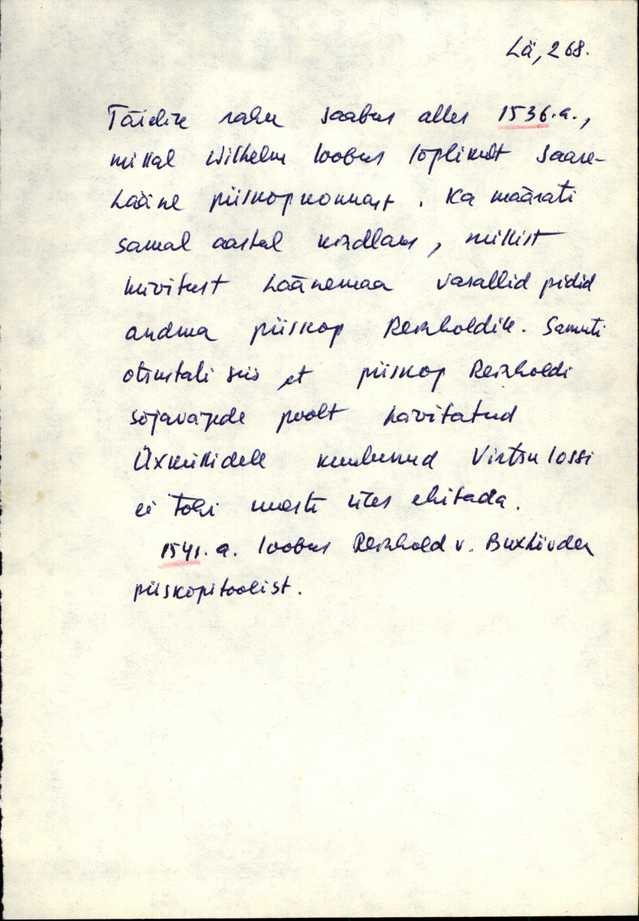 Lä, 268.
Täielik rahu saabus alles 1536.a.,
millal Wilhelm loobus lõplikult Saare-
Lääne piiskopkonnast. Ka määrati
samal aastal kindlaks, millist
hüvitust Läänemaa vasallid pidid
andma piiskop Reinholdile. Samuti
otsustati siis, et piiskop Reinholdi
sõjavägede poolt hävitatud
Üxküllidele kuulunud Virtsu lossi
ei tohi uuesti üles ehitada.
1541.a. loobus Reinhold v. Buxhövden
piiskopitoolist.